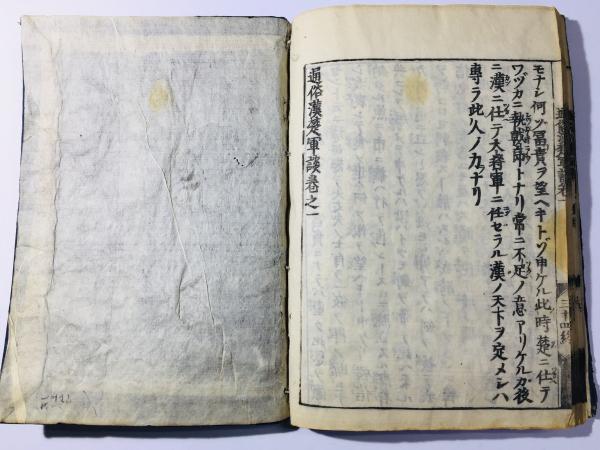 モナシ何ッ冨貴ヲ望ヘキトゾ申ケル此時楚ニ仕テ
ワヅカニ執戟郎トナリ常ニ不足ノ意アリケルガ後
ニ漢ニ仕テ大将軍ニ任セラル漢ノ天下ヲ定メシハ
專ラ此人ノ力ナリ
通俗漢楚軍談巻之一
三十四終